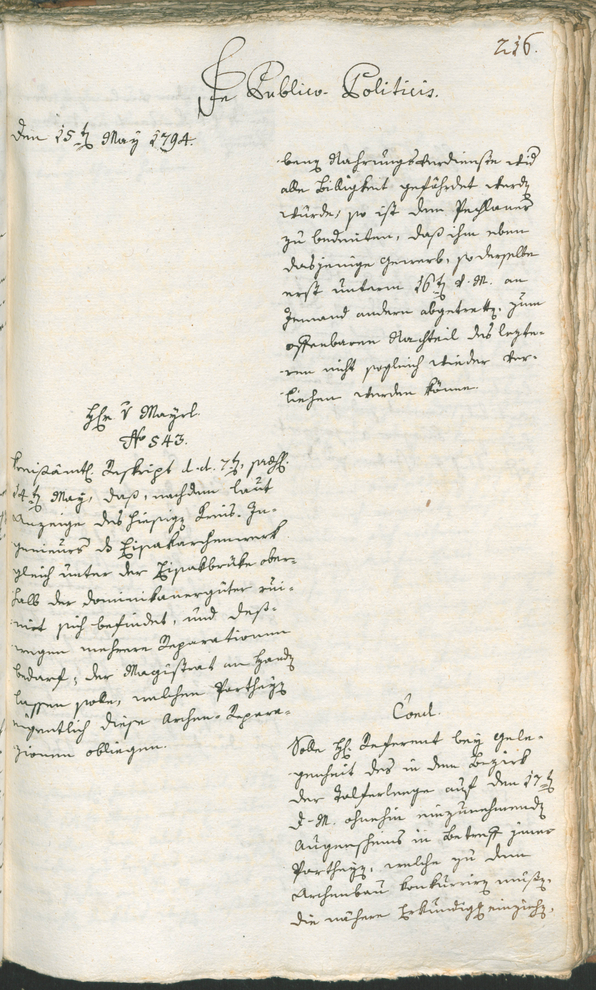 216.
De Publico-Politicis.
Den 15t May 1794.
benz Nahrungsverdienste wid
alle Billigkeit gefährdet werdn
wurde, so ist dem Pechlaner
zu bedeuten, daß ihm eben
dasjenige Gewerb, so derselbe
erst unterm 16t d. M. an
Jemand andern abgetrettn, zum
offenbaren Nachteil des lezte-
ren nicht sogleich wieder ver-
liehen werden könne.
Hr v Mayrl.
No 543.
Kreisämtl. Reskript d. d. 7t, präs.
14t May, daß, nachdem laut
Anzeige des hiesign Kreis-In-
genieurs ds Eisakarchenwerk
gleich unter der Eisakbrüke ober-
halb der Dominikanergüter rui-
nirt sich befindet, und deß-
wegen mehrere Reparationen
bedarf, der Magistrat an Handn
lassen solle, welchen Partheyn
eigentlich diese Archen-Repara-
zionen obliegen.
Concl.
Solle H. Referent bey Gele-
genheit des in dem Bezirk
der Talferlenge auf den 17t
d. M. ohnehin einzunehmendn
Augenscheins in Betreff jener
Partheyn, welche zu dem
Archenbau konkurrirn müßn,
die nähere Erkundigg einziehn,